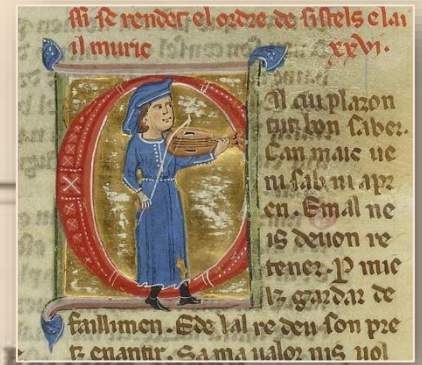 ssi se render el ordre de sistels e lai
il muric xxvi.
il cui plazon
tuit bon saber.
Can
ni sab ni apr
en. E mal ne
is deuon re
tener. P mie
lz gardar de
faillimen. E de lal re deu son pre
tz enantir. ualor nis uol